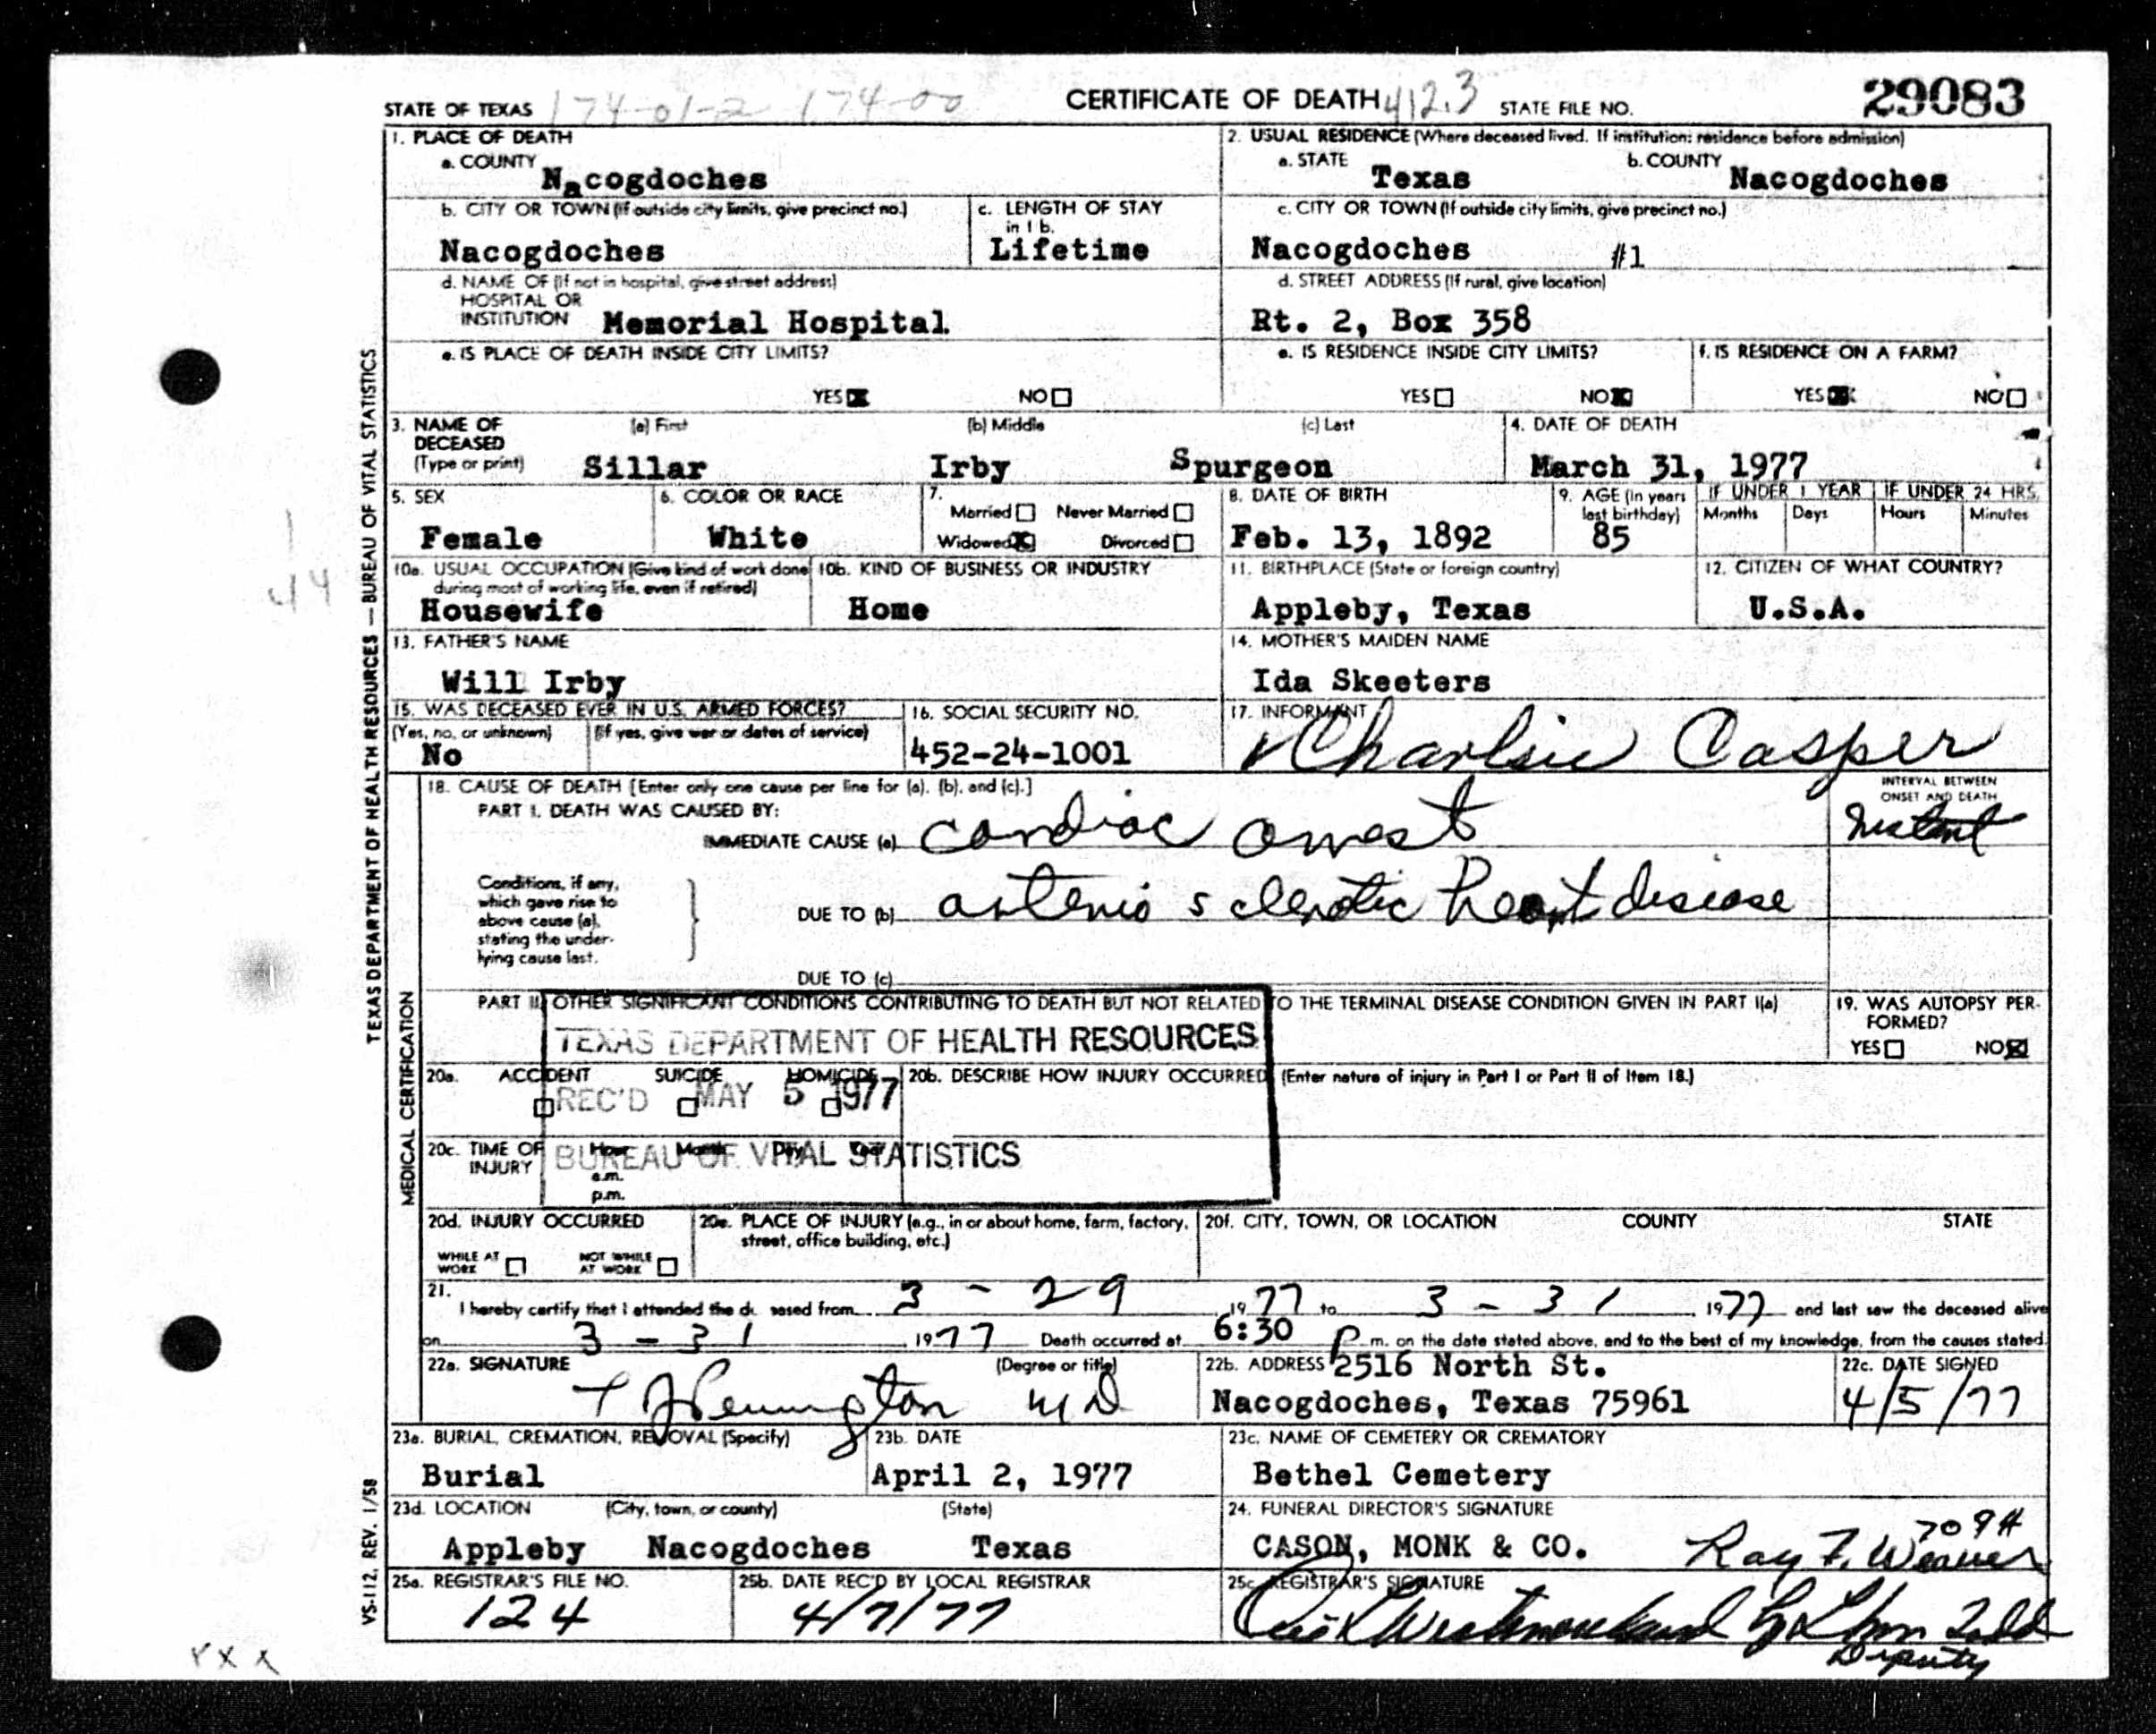 STATE OF TEXAS 174-01-2 174-00 CERTIFICATE OF DEATH 412.3 STATE FILE NO. 29083
1. PLACE OF DEATH
a. COUNTY Nacogdoches
2. USUAL RESIDENCE (Where deceased lived. If institution: residence before admission)
a. STATE Texas b. COUNTY Nacogdoches
b. CITY OR TOWN (If outside city limits, give precinct no.) Nacogdoches
c. LENGTH OF STAY in 1 b. Lifetime
c. CITY OR TOWN (If outside city limits, give precinct no.)
Nacogdoches #1
d. NAME OF (If not in hospital, give street address)
HOSPITAL OR
INSTITUTION Memorial Hospital
d. STREET ADDRESS (If rural, give location)
Rt. 2, Box 358
e. IS PLACE OF DEATH INSIDE CITY LIMITS?
YES X NO
e. IS RESIDENCE INSIDE CITY LIMITS?
YES NO X
f. IS RESIDENCE ON A FARM?
YES X NO
3. NAME OF DECEASED (Type or print)
(a) First (b) Middle (c) Last
Sillar Irby Spurgeon
4. DATE OF DEATH
March 31, 1977
5. SEX
Female
6. COLOR OR RACE
White
7.
Married Never Married
Widowed X Divorced
8. DATE OF BIRTH
Feb. 13, 1892
9. AGE (In years last birthday)
85
IF UNDER 1 YEAR
Months Days
IF UNDER 24 HRS.
Hours Minutes
10a. USUAL OCCUPATION (Give kind of work done during most of working life, even if retired)
Housewife
10b. KIND OF BUSINESS OR INDUSTRY
Home
11. BIRTHPLACE (State or foreign country)
Appleby, Texas
12. CITIZEN OF WHAT COUNTRY?
U.S.A.
13. FATHER'S NAME
Will Irby
14. MOTHER'S MAIDEN NAME
Ida Skeeters
15. WAS DECEASED EVER IN U.S. ARMED FORCES?
(Yes, no, or unknown) (If yes, give war or dates of service)
No
16. SOCIAL SECURITY NO.
452-24-1001
17. INFORMANT
Charlsie Casper
18. CAUSE OF DEATH [Enter only one cause per line for (a), (b), and (c).]
PART I. DEATH WAS CAUSED BY:
IMMEDIATE CAUSE (a) cardiac arrest
INTERVAL BETWEEN ONSET AND DEATH
Instant
Conditions, if any,
which gave rise to
above cause (a),
stating the under-
lying cause last.
DUE TO (b) arterio sclerotic heart disease
DUE TO (c)
PART II. OTHER SIGNIFICANT CONDITIONS CONTRIBUTING TO DEATH BUT NOT RELATED TO THE TERMINAL DISEASE CONDITION GIVEN IN PART I(a)
19. WAS AUTOPSY PER-
FORMED?
YES NO X
TEXAS DEPARTMENT OF HEALTH RESOURCES
REC'D MAY 5 1977
BUREAU OF VITAL STATISTICS
20a. ACCIDENT SUICIDE HOMICIDE
20b. DESCRIBE HOW INJURY OCCURRED (Enter nature of injury in Part I or Part II of Item 18.)
20c. TIME OF INJURY
Hour Month Day Year
a.m.
p.m.
20d. INJURY OCCURRED
WHILE AT WORK NOT WHILE AT WORK
20e. PLACE OF INJURY (e.g., in or about home, farm, factory, street, office building, etc.)
20f. CITY, TOWN, OR LOCATION COUNTY STATE
21.
I hereby certify that I attended the deceased from 3-29 1977 to 3-31 1977 and last saw the deceased alive
on 3-31 1977 Death occurred at 6:30 p m. on the date stated above, and to the best of my knowledge, from the causes stated.
22a. SIGNATURE (Degree or title)
MD
22b. ADDRESS 2516 North St.
Nacogdoches, Texas 75961
22c. DATE SIGNED
4/5/77
23a. BURIAL, CREMATION, REMOVAL (Specify)
Burial
23b. DATE
April 2, 1977
23c. NAME OF CEMETERY OR CREMATORY
Bethel Cemetery
23d. LOCATION (City, town, or county) (State)
Appleby Nacogdoches Texas
24. FUNERAL DIRECTOR'S SIGNATURE
CASON, MONK & CO. Ray F. Weaver
25a. REGISTRAR'S FILE NO.
124
25b. DATE REC'D BY LOCAL REGISTRAR
4/7/77
25c. REGISTRAR'S SIGNATURE
Deputy
TEXAS DEPARTMENT OF HEALTH RESOURCES — BUREAU OF VITAL STATISTICS
MEDICAL CERTIFICATION
VS-112, REV. 1/58